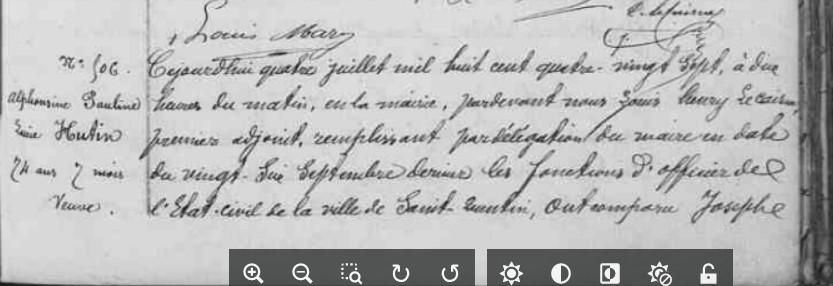 Louis Mary
N° 506.
Alphonsine Pauline
Hutin
74 ans 7 mois
Veuve.
Cejourd'hui quatre juillet mil huit cent quatre-vingt sept, à dix
heures du matin, en la mairie, pardevant nous Louis henry
premier adjoint, remplissant par délégation du maire en date
du vingt-six Septembre dernier les fonctions d'officier de
l'Etat-civil de la ville de Saint-Quentin, Ont comparu Joseph